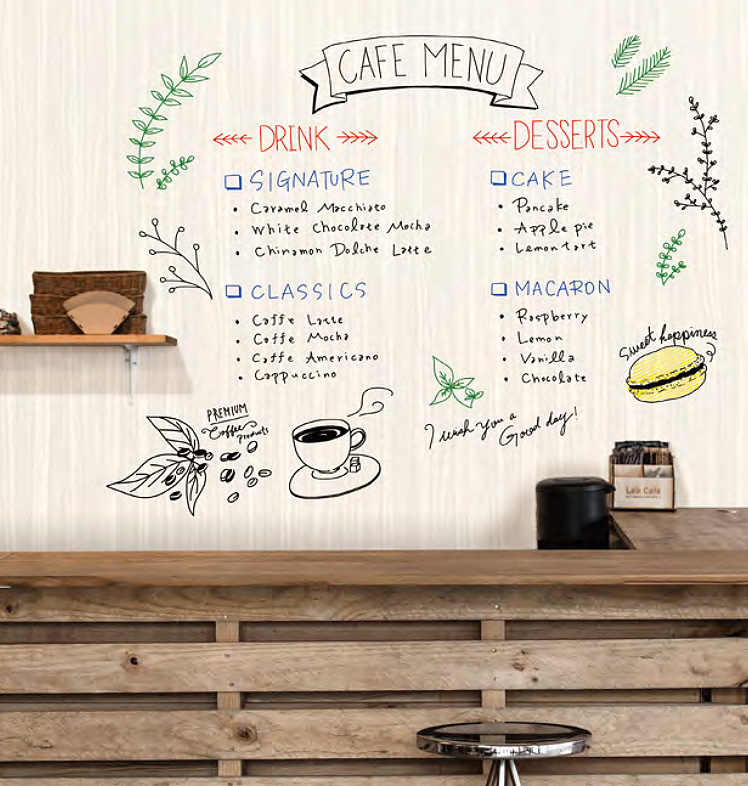 CAFE MENU
DRINK
SIGNATURE
Caramel Macchiato
White Chocolate Mocha
Chinamon Dolche Latte
CLASSICS
Caffe Latte
Caffe Mocha
Caffe Americano
Cappuccino
DESSERTS
CAKE
Pancake
Apple pie
Lemontart
MACARON
Raspberry
Lemon
Vanilla
Chocolate
Sweet happiness
PREMIUM
Coffee
products
I wish you a
Good day!
Lab Café